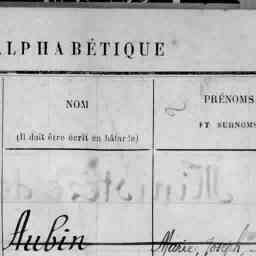 ALPHABÉTIQUE
NOM
(Il doit être écrit en bâtarde)
PRÉNOMS
ET SURNOMS
Aubin
Marie, Joseph